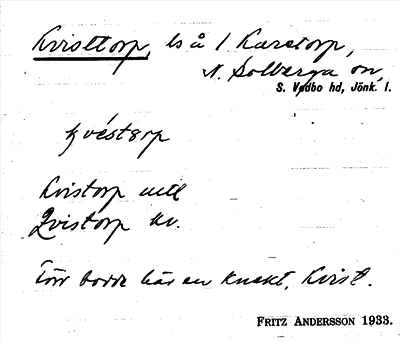 Kvisttorp, ls å 1 Karstorp,
N. Solberga sn,
S. Vedbo hd, Jönk. l.
Kvistorp
Qvistorp kv.
Förr bodde här en knekt, Kvist.
FRITZ ANDERSSON 1933.